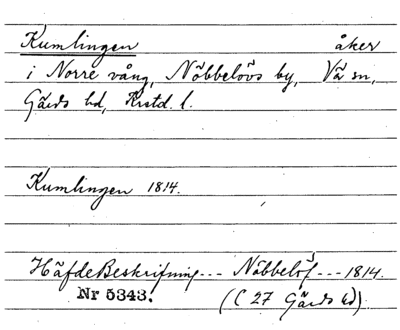 Kumlingen åker
i Norre vång, Nöbbelövs by, Vä sn,
Gärds hd, Krstd. l.
Kumlingen 1814.
HäfdeBeskrifning--- Nöbbelöf---1814.
Nr 5343. (C 27 Gärds hd)